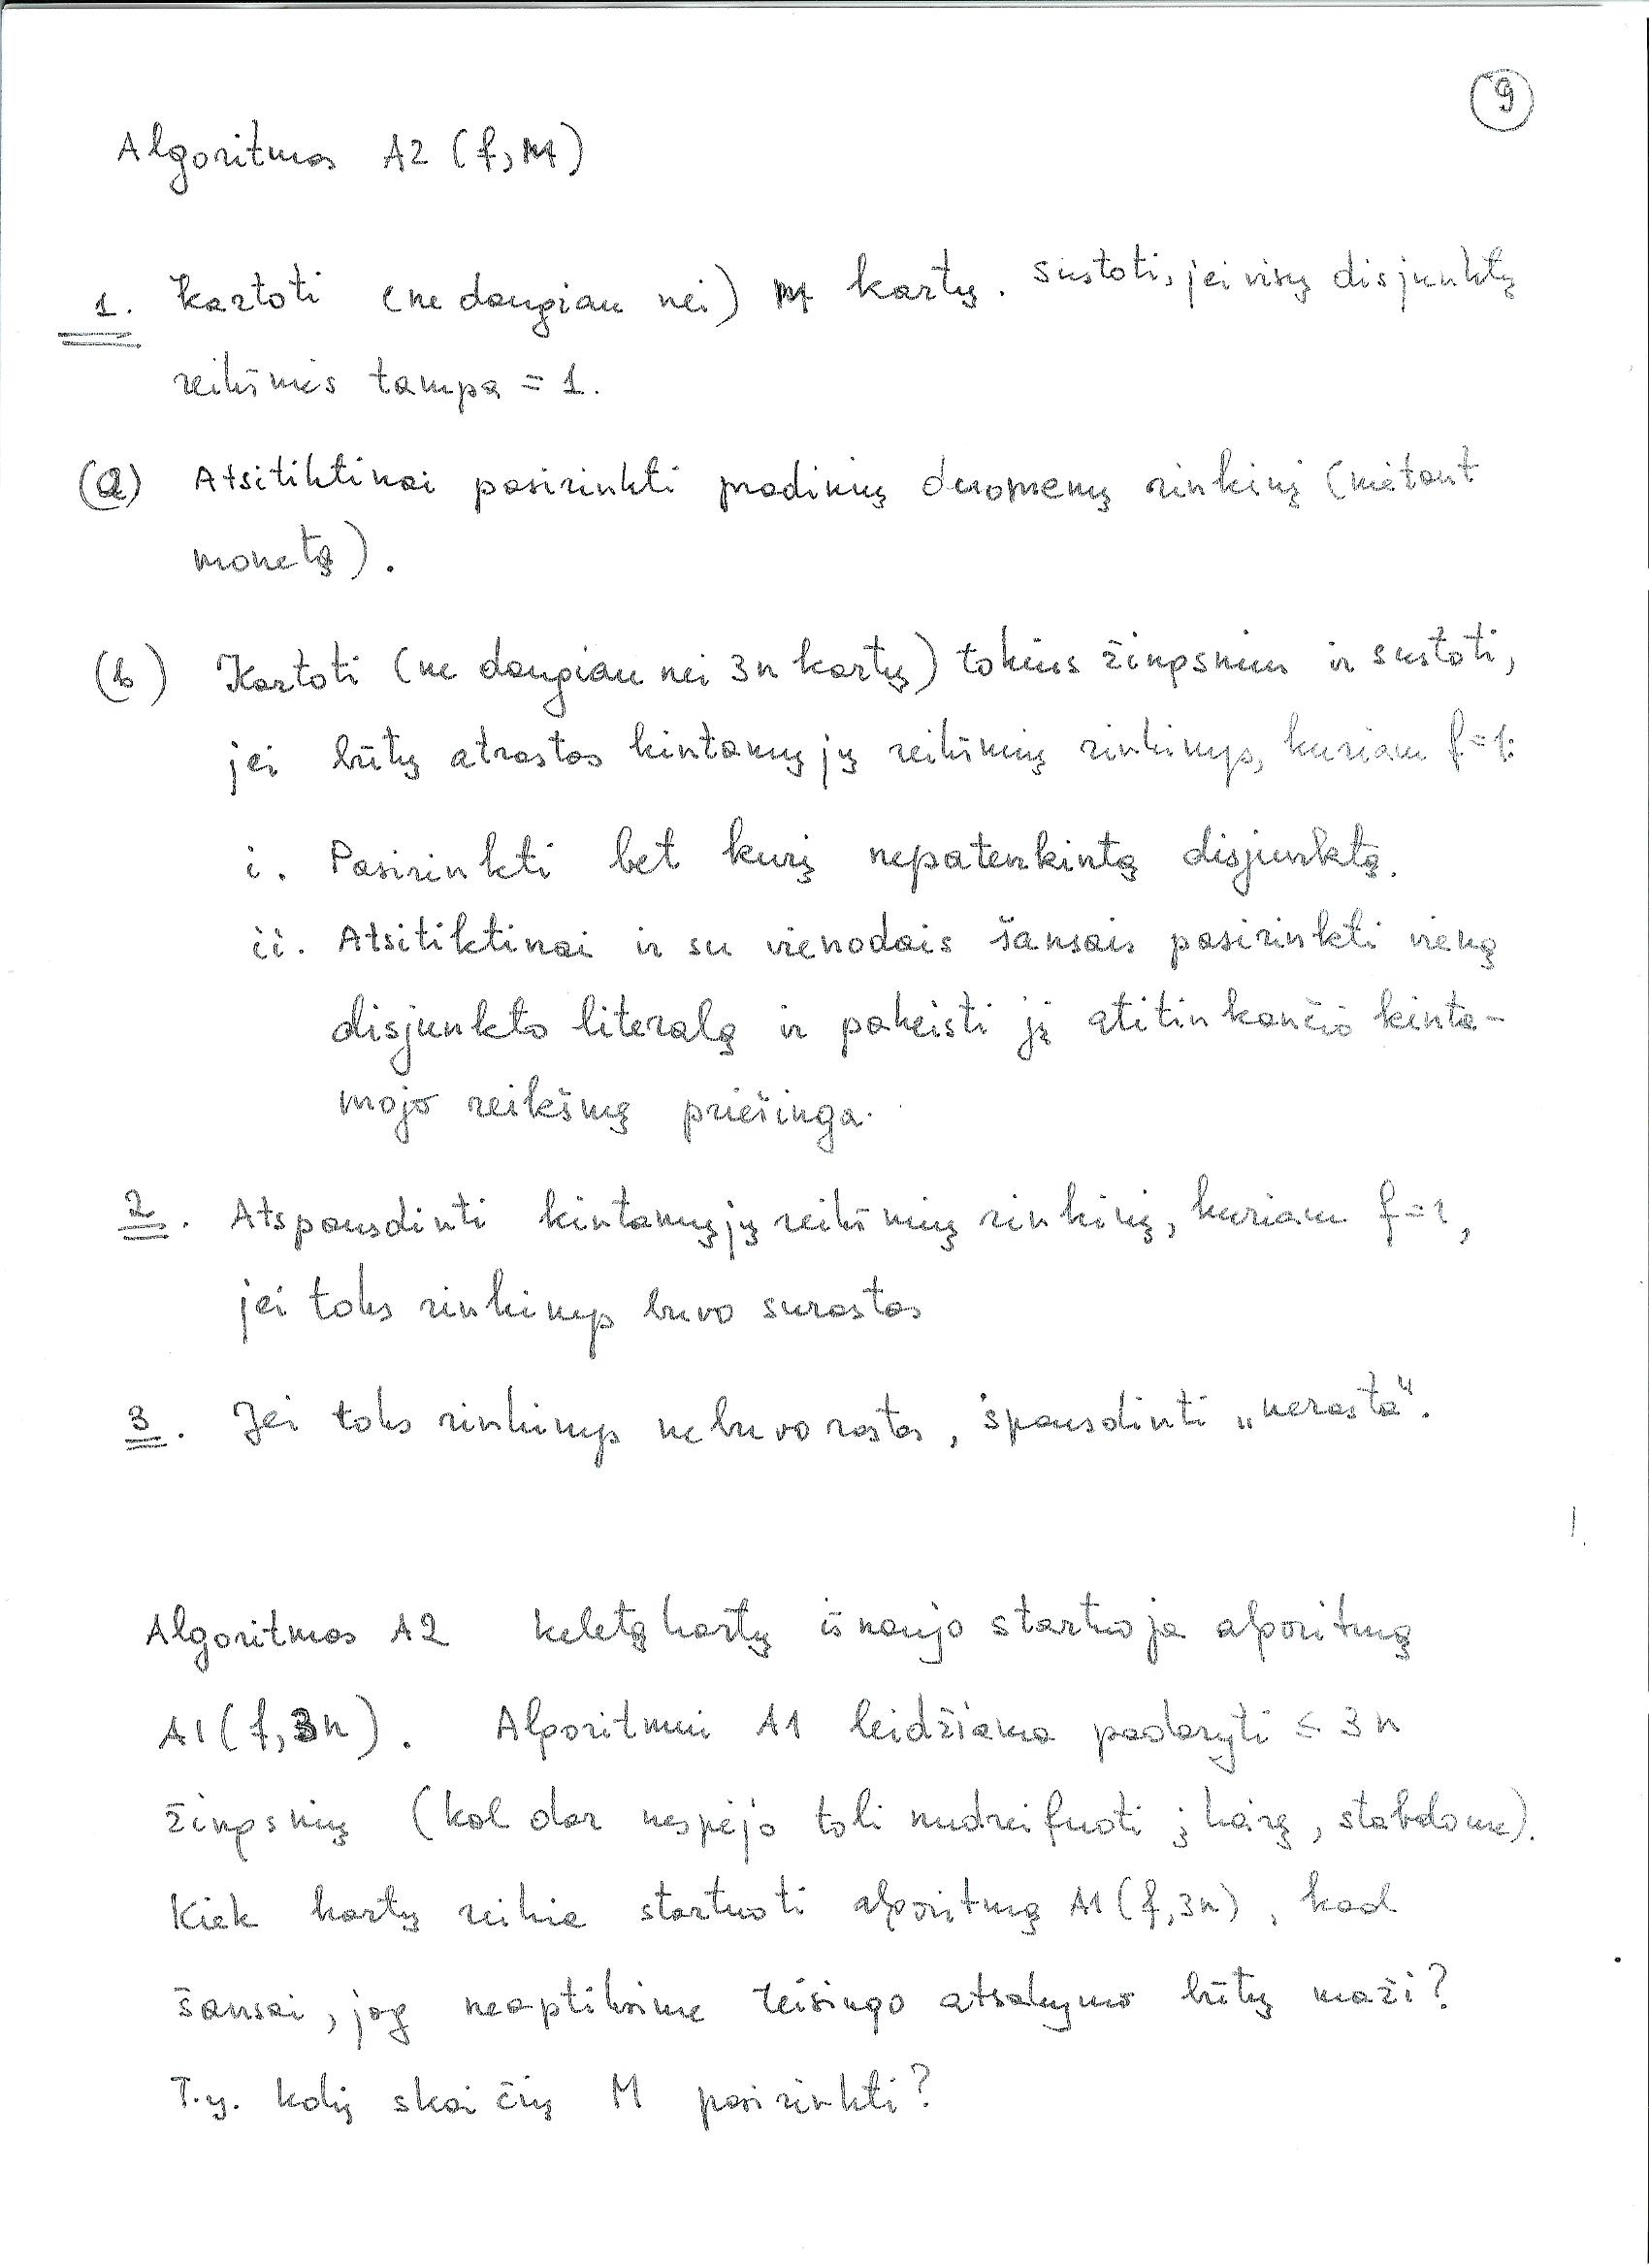 9
Algoritmas A2 (f, M)
1. Kartoti (ne daugiau nei) M kartų. Sustoti, jei visų disjunktų
reikšmės tampa = 1.
(a) Atsitiktinai pasirinkti pradinių duomenų rinkinį (mėtant
monetą).
(b) Kartoti (ne daugiau nei 3n kartų) tokius žingsnius ir sustoti,
jei būtų atrastas kintamųjų reikšmių rinkinys, kuriam f=1:
i. Pasirinkti bet kurį nepatenkintą disjunktą.
ii. Atsitiktinai ir su vienodais šansais pasirinkti vieną
disjunkto literalą ir pakeisti jį atitinkančio kinta-
mojo reikšmę priešinga.
2. Atspausdinti kintamųjų reikšmių rinkinį, kuriam f=1,
jei toks rinkinys buvo surastas
3. Jei toks rinkinys nebuvo rastas, spausdinti „nerasta“.
Algoritmas A2 keletą kartų iš naujo startuoja algoritmą
A1(f,3n). Algoritmui A1 leidžiama padaryti ≤ 3n
žingsnių (kol dar nespėjo toli nudreifuoti į kairę, stabdome).
Kiek kartų reikia startuoti algoritmą A1(f,3n), kad
šansai, jog neaptiksime teisingo atsakymo būtų maži?
T.y. kokį skaičių M pasirinkti?